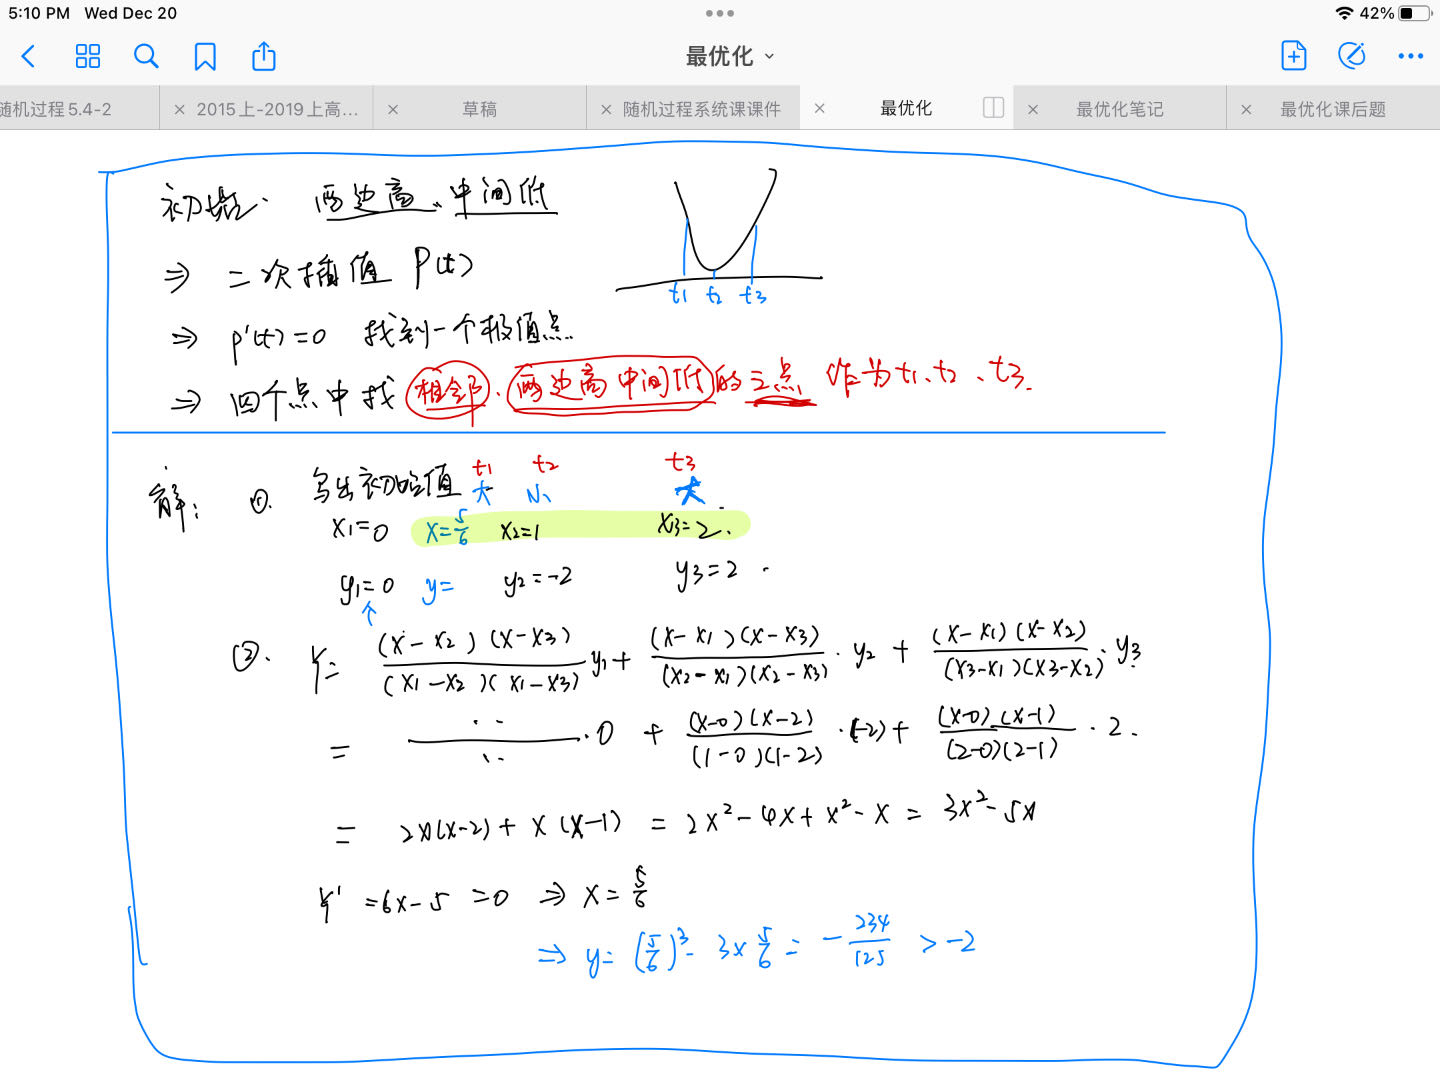 5:10 PM Wed Dec 20
42%
最优化
随机过程5.4-2
2015上-2019上高...
草稿
随机过程系统课课件
最优化
最优化笔记
最优化课后题
两边高、中间低
t1 t2 t3
⇒ 二次插值 P(t)
⇒ P'(t)=0 找到一个极值点.
⇒ 四个点中找 相邻、两边高中间低的三点 作为t1、t2、t3.
解: ①. 写出初始值
t1 t2 t3
大 小 大
x1=0 x=5/6 x2=1 x3=2.
y1=0 y= y2=-2 y3=2.
↑
②. Y= (x-x2)(x-x3)/(x1-x2)(x1-x3) y1 + (x-x1)(x-x3)/(x2-x1)(x2-x3) · y2 + (x-x1)(x-x2)/(x3-x1)(x3-x2) · y3
= ··/·· · 0 + (x-0)(x-2)/(1-0)(1-2) · (-2) + (x-0)(x-1)/(2-0)(2-1) · 2.
= 2x(x-2) + x(x-1) = 2x²-4x+x²-x = 3x²-5x
Y' =6x-5 =0 ⇒ x= 5/6
⇒ y= (5/6)³- 3x 5/6 = - 234/125 > -2